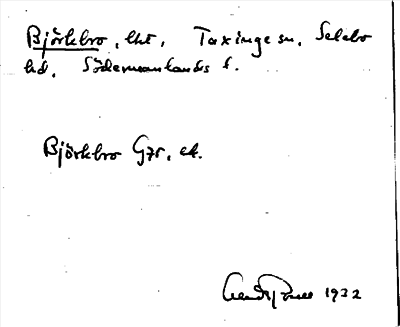 Björkbro, lht, Taxinge sn, Selebo
hd, Södermanlands l.
Björkbro Gzr, ek.
1932